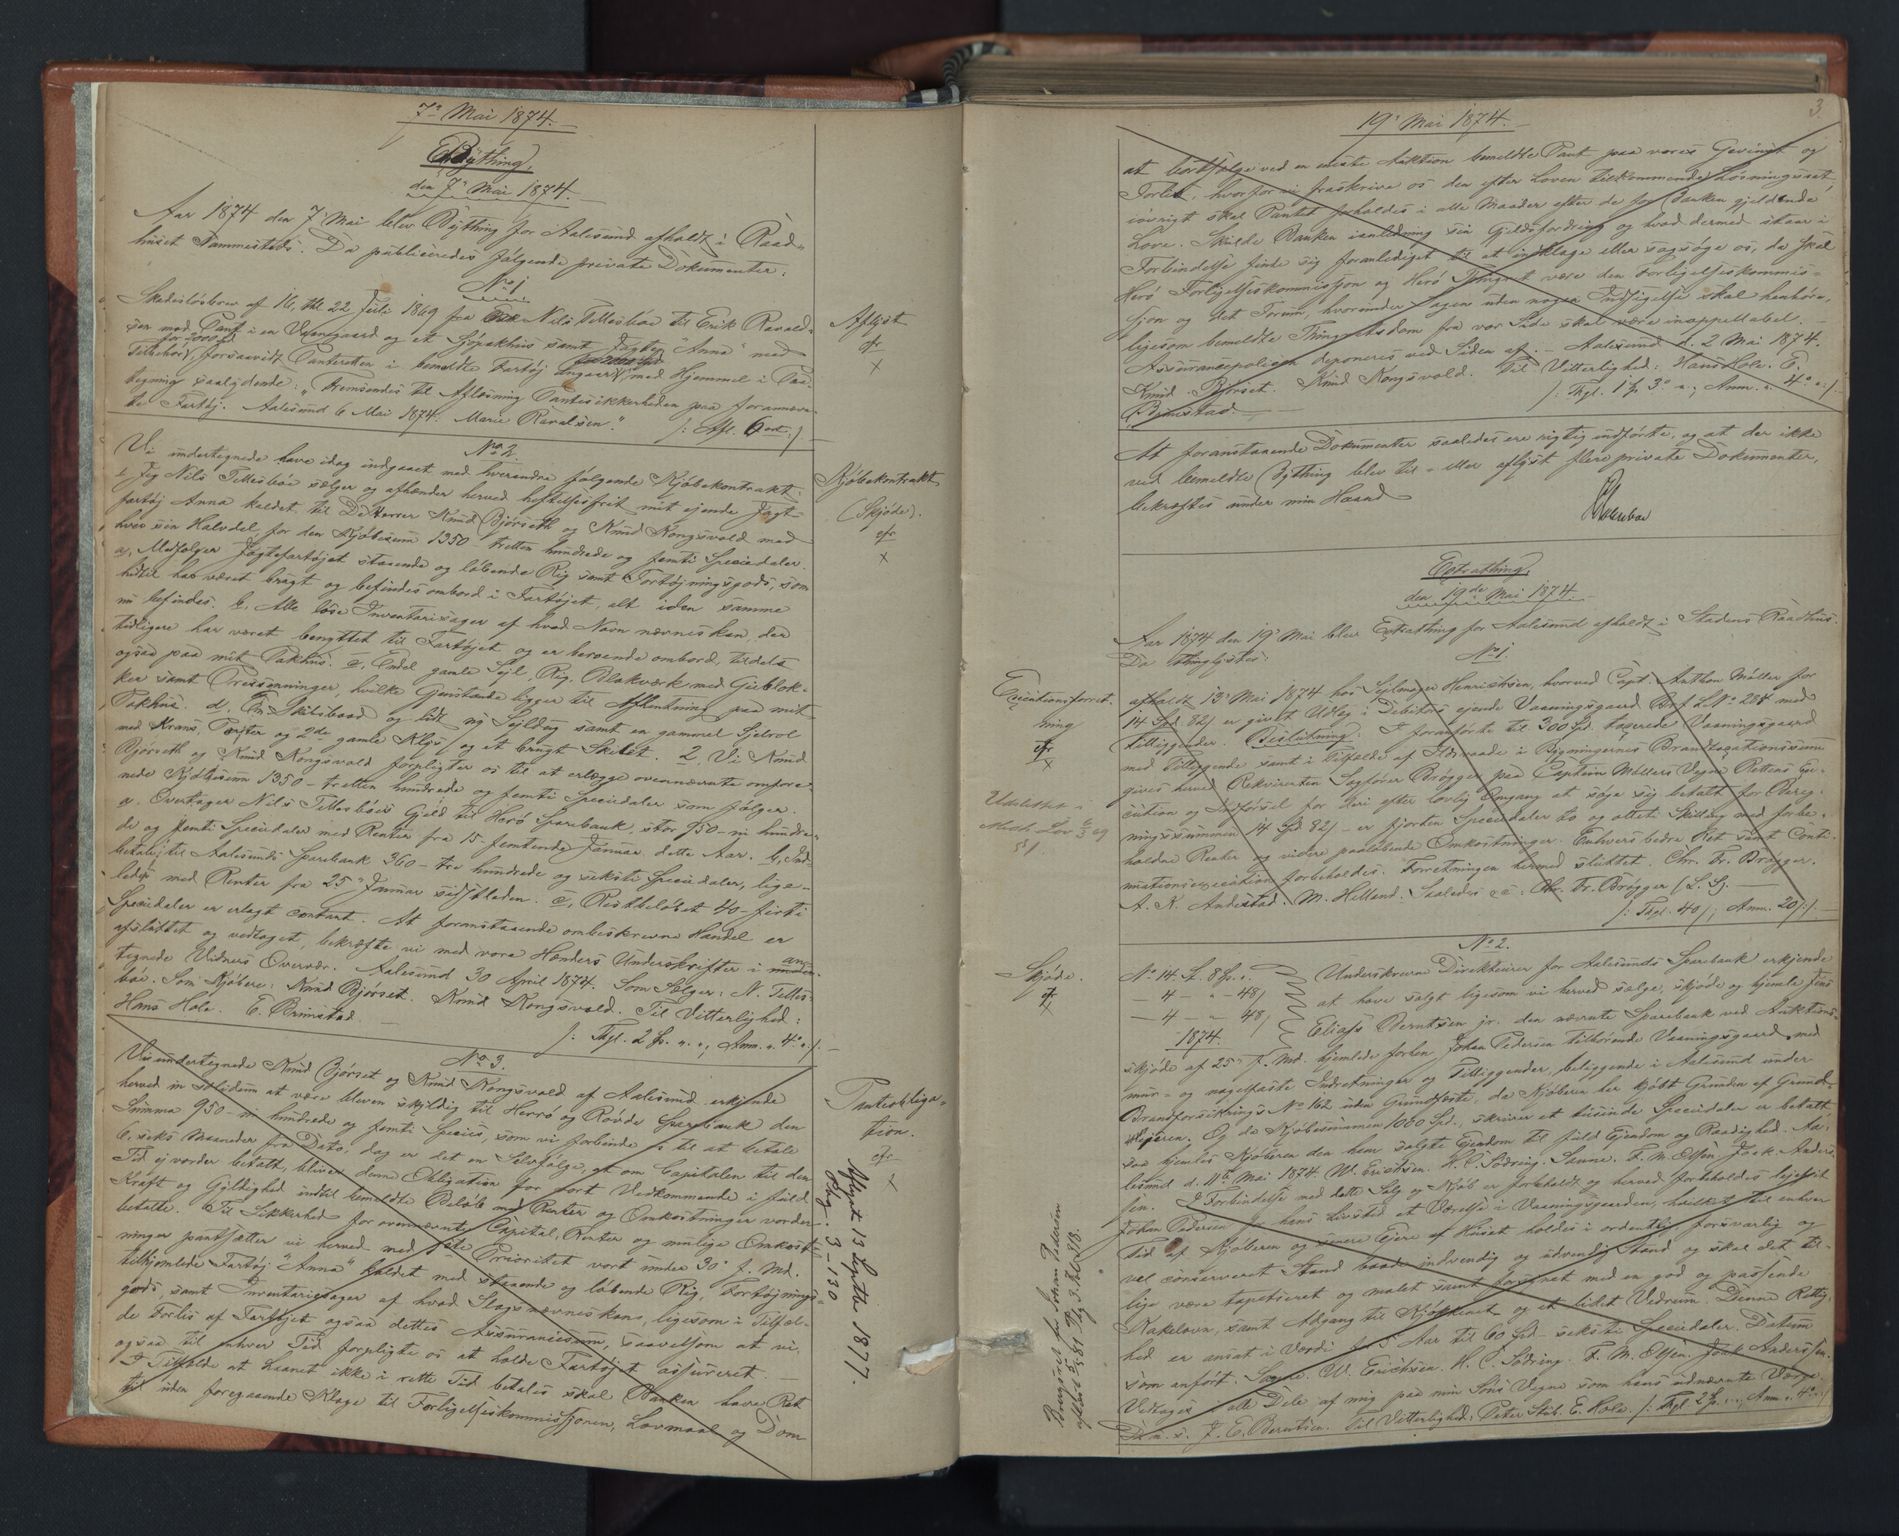 7de Mai 1874.
Bything
den 7' Mai 1874.
Aar 1874 den 7' Mai blev Bything for Aalesund afholdt i Raad-
huset sammesteds. Da publiceredes følgende private Dokumenter:
No 1
Skadesløsbrev af 16, thl. 22 Juli 1869 fra Nils Tillesbøe til Erik Ravald-
sen med Pant i en Vaaningsgaard og et Søpakhus samt Jagten "Anna" med
Tilbehør, forsaavidt Panteretten i bemeldte Fartøj angaar, med Hjemmel i Paa-
tegning saalydende: "Fremsendes til Aflæsning Pantesikkerheden paa forannævn-
te Fartøj. Aalesund 6 Mai 1874. Marie Ravalsen." /: Afl. 6 ort :/
Aflyst
cfr
x
No 2.
Vi undertegnede have idag indgaaet med hverandre følgende Kjøbekontrakt:
1, Jeg Nils Tillesbøe sælger og afhænder herved heftelsesfrit mit ejende Jagt-
fartøj Anna kaldet, til De Herrer Knud Bjørseth og Knud Kongsvold med
hver sin Halvdel for den Kjøbesum 1350 - tretten hundrede og femti Speciedaler.
a, Medfølger Jagtefartøjet staaende og løbende Rig samt Fortøjningsgods, som
hidtil har været brugt og befindes ombord i Fartøjet, alt i den samme
nu befindes. b, Alle løse Inventariesager af hvad Navn nævnes kan, der
tidligere har været benyttet til Fartøjet og er beroende ombord, tildels
ogsaa paa mit Pakhus. c, Endel gamle Sejl, Rig, Blakværk med Gieblok-
ker samt Presenninger, hvilke Gjenstande ligger til Afhentning paa mit
Pakhus. d, En Skibsbaad og lidt ny Sejldug samt en gammel Spelrol
med Krans, Tougster og 2de gamle Klys, og et brugt Skilet. 2, Vi Knud
Bjørseth og Knud Kongsvold forpligter os til at erlægge ovennævnte omfore-
nede Kjøbesum 1350 - tretten hundrede og femti Speciedaler som følger.
a. Overtager Nils Tillesbøes Gjeld til Herø Sparebank, stor 950 - ni hundre-
de og femti Speciedaler med Renter fra 15 - femtende Januar dette Aar. b, Ind-
betales til Aalesunds Sparebank 360 - tre hundrede og seksti Speciedaler, lige-
ledes med Renter fra 25' Januar sidstleden. c, Restbeløbet 40 - firti
Speciedaler er erlagt contant. At foranstaaende ombeskrevne Handel er
afsluttet og vedtaget, bekræfte vi med vore Hænders Underskrifter i under-
tegnede Vidners Overvær. Aalesund 30 April 1874. Som Sælger: N. Tilles-
bøe. Som Kjøbere: Knud Bjørset. Knud Kongsvold. Til Vitterlighed:
Hans Hole. E. Brunstad.
/: Thgl. 2 ſp. " ", Anm. " 4 o :/
Kjøbekontrakt
(Skjøde).
cfr
x
No 3.
Vi undertegnede Knud Bjørset og Knud Kongsvold af Aalesund erkjende
herved in solidum at være bleven skyldig til Herrø og Røvde Sparebank den
Summa 950 - ni hundrede og femti Species, som vi forbinde os til at betale
6, seks Maaneder fra Dato, dog er det en Selvfølge, at om Capitalen til den
Tid ej vorder betalt, bliver denne Obligation for vort Vedkommende i fuld
Kraft og Gyldighed indtil bemeldte Beløb med Renter og Omkostninger vorder
betalte. Til Sikkerhed for ovennævnte Capital, Renter og mulige Omkost-
ninger pantsætter vi herved med 1ste Prioritet vort under 30' f. Md.
tilhjemlede Fartøj "Anna" kaldet med staaende og løbende Rig, Fortøjnings-
gods, samt Inventariesager af hvad Slags nævnes kan, ligesom i Tilfæl-
de Forlis af Fartøjet ogsaa dettes Assurancesum, saavelsom at vi
ogsaa til enhver Tid forpligte os at holde Fartøjet assureret. -
I Tilfælde at Laanet ikke i rette Tid betales skal Banken have Ret
til uden foregaaende Klage til Forligelseskommissjonen, Lovmaal og Dom
Panteobliga-
tion.
cfr
x
Aflyst 13 Septbr 1877.
Pbg. 3 - 130
3
19' Mai 1874.
at bortsælge ved en eneste Auktion bemeldte Pant paa vores Gevinst og
Forlis, hvorfor vi fraskrive os den efter Loven tilkommende Løsningsret,
iøvrigt skal Pantet forholdes i alle Maader efter de for Banken gjeldende
Love. Skulde Banken i anledning sin Gjeldsfordring og hvad dermed staar i
Forbindelse finde sig foranlediget til at indklage eller sagsøge os, da skal
Herø Forligelseskommission og Herø Thinget være den Forligelseskommis-
sjon og det Forum, hvorunder Sagen uden nogen Indsigelse skal henhøre,
ligesom bemeldte Thingretsdom fra vor Side skal være inappellabel. -
Assurancepolicen deponeres ved Siden af. - Aalesund d. 2 Mai 1874.
Knud Bjørset. Knud Kongsvold. Til Vitterlighed: Hans Hole. E.
Brunstad. /: Thgl. 1 ſp. 3 o ", Anm. " 4 o " :/
At foranstaaende Dokumenter saaledes ere rigtig indførte, og at der ikke
ved bemeldte Bything blev til- eller aflyst flere private Dokumenter,
bekræftes under min Haand
Extrathing.
den 19de Mai 1874.
Aar 1874 den 19' Mai blev Extrathing for Aalesund afholdt i Stadens Raadhus.
Da thinglystes:
No 1.
afholdt 13' Mai 1874 hos Sejlmager Henrichsen, hvorved Capt. Anthon Müller for
14 Spd. 82/ er givet Udlæg i Debitors ejende Vaaningsgaard Brf. L. No 284 med
Tilliggender. Beslutning: I foranførte til 300 Spd. taxerede Vaaningsgaard
med Tilliggende samt i Tilfælde af Ildsvaade i Bygningernes Brandtaxationssum
gives herved Rekvirenten Sagfører Brøgger paa Captein Müllers Vegne Rettens Exe-
cution og Indførsel for deri efter lovlig Omgang at søge sig betalt for Paareg-
ningssummen 14 Spd. 82/ - er fjorten Speciedaler to og otteti Skilling med forbe-
holdne Renter og videre paaløbende Omkostninger. Enhvers bedre Ret samt Conti-
nuationsexecution forbeholdes. Forretningen hermed sluttet. Chr. Fr. Brøgger.
A. K. Andestad. M. Helland. Saaledes cc: Chr. Fr. Brøgger (L. S.) -
/: Thgl. 40/, Anm. 20/ :/
Executionsforret-
ning
cfr
x
Udslettet i
Medh. Lov
§ 1.
No 2.
Skjøde.
cfr
x
No 14. L. 8 ſp.
- 4 - " - 48/
- 4 - " 48/
1874.
Underskrevne Direkteurer for Aalesunds Sparebank erkjende
at have solgt ligesom vi herved sælge, skjøde og hjemle Jens
Eliass Berntsen jr. den nævnte Sparebank ved Auktions-
skjøde af 25' f. Md. hjemlede forhen Johan Pedersen tilhørende Vaaningsgaard med
mur- og nagelfaste Indretninger og Tilliggender, beliggende i Aalesund under
Brandforsikrings No 162 uden Grundfæste, da Kjøberen har kjøbt Grunden af Grund-
ejeren. Og da Kjøbesummen 1000 Spd., skriver et tusinde Speciedaler er betalt,
saa hjemles Kjøberen den ham solgte Ejendom til fuld Ejendom og Raadighed. Aa-
lesund d. 11te Mai 1874. W. Erichsen. H. C. Sødring. Sanne. F. M. Olsen. Joak Anders-
sen. I Forbindelse med dette Salg og Kjøb er forbeholdt og herved forbeholdes legesit
Johan Pedersen for hans Livstid et Værelse i Vaaningsgaarden, hvilket til enhver
Tid af Kjøberen og senere Ejere af Huset holdes i ordentlig, forsvarlig og
vel conserveret Stand baade indvendig og udvendig Stand og skal det til-
lige være tapetseret og malet samt forsynet med en god og passende
Kakelovn, samt Adgang til Kjøkkenet og et lidet Vedrum. Denne Rettig-
hed er ansat i Værdi for 5 Aar til 60 Spd. - seksti Speciedaler. Datum
som anført. Sanne. W. Erichsen. H. C. Sødring. F. M. Olsen. Joak Anderssen.
Vedtages i alle Dele af mig paa min Søns Vegne som hans udnævnte Værge.
D. u. s. J. E. Berntsen. Til Vitterlighed: Peter Stub. E. Hole. /: Thgl. 2 ſp. " ", Anm " 4 o " :/
Brugsret for Johan Pedersen
aflæst